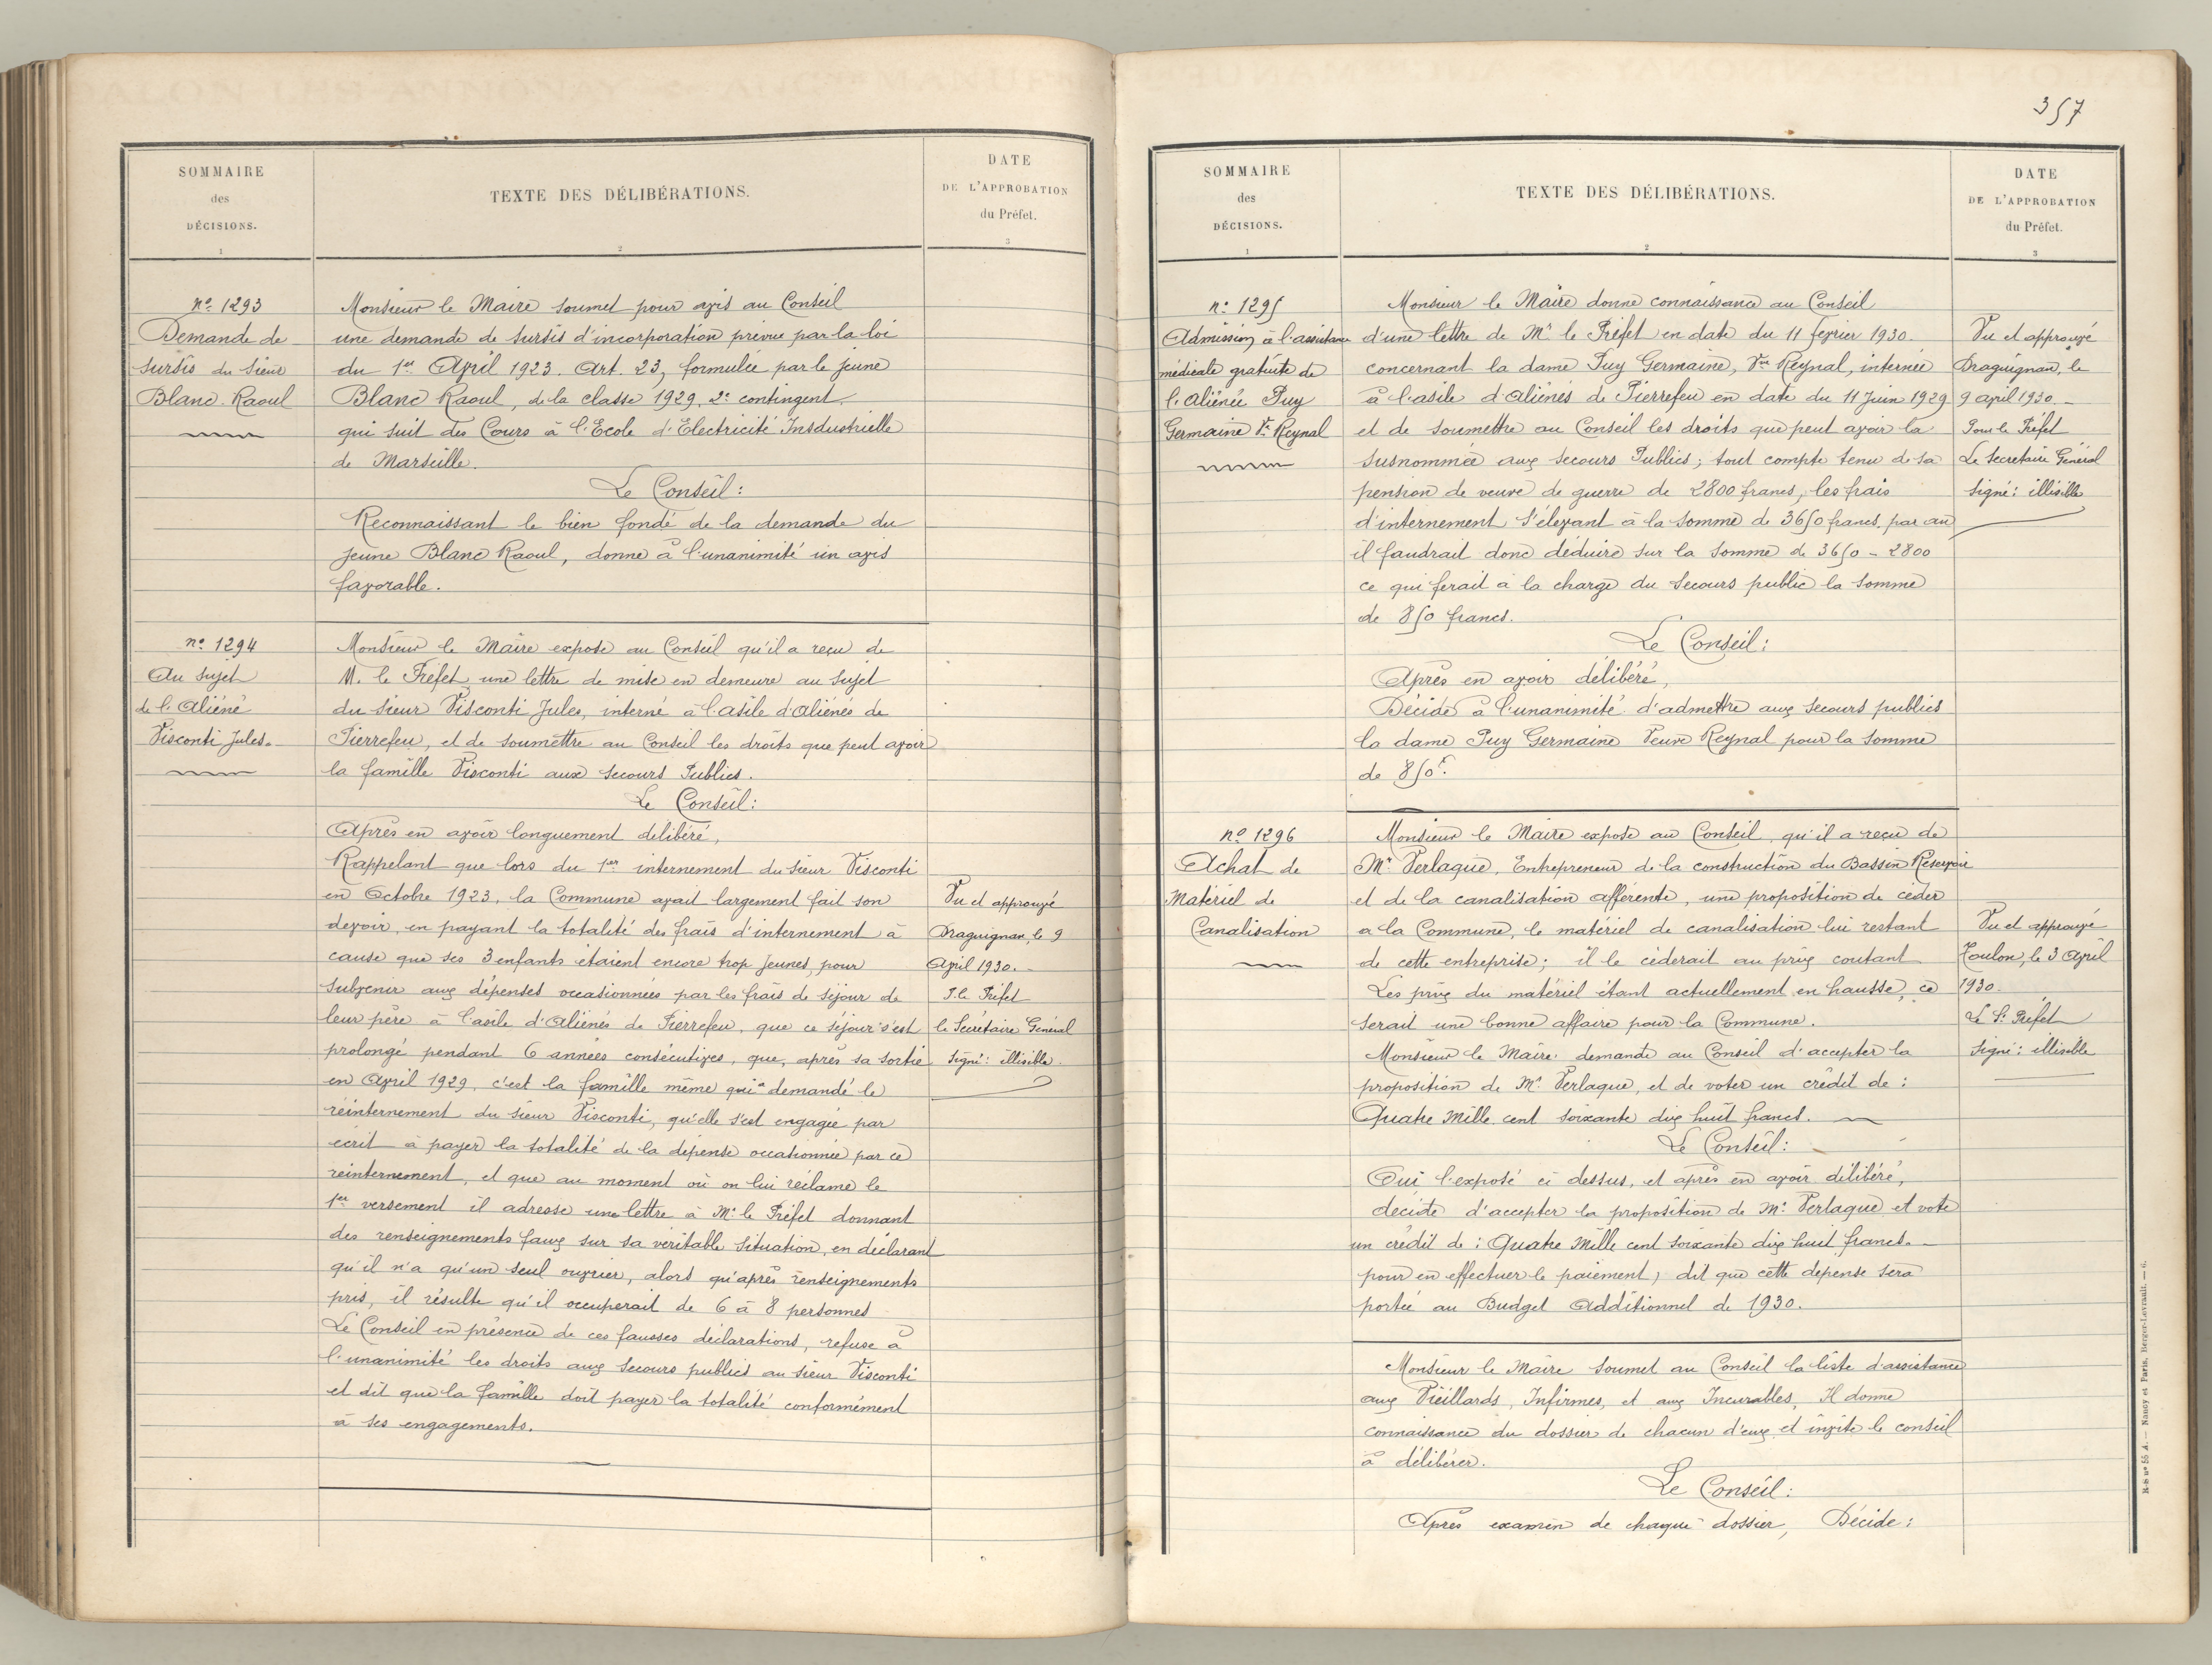 SOMMAIRE
des
DÉCISIONS.
1
TEXTE DES DÉLIBÉRATIONS.
2
DATE
DE L'APPROBATION
du Préfet.
3
nº 1293
Demande de
sursis du sieur
Blanc Raoul
Monsieur le Maire soumet pour avis au Conseil
une demande de sursis d'incorporation prévue par la loi
du 1er Avril 1923. Art. 23, formulée par le jeune
Blanc Raoul, de la classe 1929. 2e contingent.
qui suit des Cours à l'Ecole d'Electricité Insdustrielle
de Marseille.
Le Conseil:
Reconnaissant le bien fondé de la demande du
jeune Blanc Raoul, donne à l'unanimité un avis
favorable.
nº 1294
Au sujet
de l'Aliéné
Visconti Jules.
Monsieur le Maire expose au Conseil qu'il a reçu de
M. le Préfet une lettre de mise en demeure au sujet
du sieur Visconti Jules, interné à l'asile d'aliénés de
Pierrefeu, et de soumettre au Conseil les droits que peut avoir
la famille Visconti aux secours Publics.
Le Conseil:
Après en avoir longuement délibéré,
Rappelant que lors du 1er internement du sieur Visconti
en Octobre 1923, la Commune avait largement fait son
devoir, en payant la totalité des frais d'internement à
cause que ses 3 enfants étaient encore trop jeunes, pour
subvenir aux dépenses occasionnées par les frais de séjour de
leur père à l'asile d'Aliénés de Pierrefeu, que ce séjour s'est
prolongé pendant 6 années consécutives, que, après sa sortie
en Avril 1929, c'est la famille même qui a demandé le
réinternement du sieur Visconti, qu'elle s'est engagée par
écrit à payer la totalité de la dépense occasionnée par ce
reinternement, et que au moment où on lui réclame le
1er versement il adresse une lettre à Mr le Préfet donnant
des renseignements faux sur sa véritable situation, en déclarant
qu'il n'a qu'un seul ouvrier, alors qu'après renseignements
pris, il résulte qu'il occuperait de 6 à 8 personnes
Le Conseil en présence de ces fausses déclarations, refuse à
l'unanimité les droits aux secours publics au sieur Visconti
et dit que la famille doit payer la totalité conformément
à ses engagements.
Vu et approuvé
Draguignan, le 9
Avril 1930.
P. le Préfet
le Secrétaire Général
Signé: illisible.
357
SOMMAIRE
des
DÉCISIONS.
1
TEXTE DES DÉLIBÉRATIONS.
2
DATE
DE L'APPROBATION
du Préfet.
3
nº 1295
Admission à l'assistance
médicale gratuite de
l'Aliénée Puy
Germaine Vve Reynal
Monsieur le Maire donne connaissance au Conseil
d'une lettre de Mr le Préfet en date du 11 février 1930.
concernant la dame Puy Germaine, Vve Reynal, internée
à l'asile d'aliénés de Pierrefeu en date du 11 Juin 1929
et de soumettre au Conseil les droits que peut avoir la
susnommée aux secours Publics; tout compte tenu de sa
pension de veuve de guerre de 2800 francs, les frais
d'internement s'élevant à la somme de 3650 francs par an
il faudrait donc déduire sur la somme de 3650 - 2800
ce qui ferait à la charge du secours public la somme
de 850 francs.
Le Conseil:
Après en avoir délibéré,
Décide à l'unanimité d'admettre aux secours publics
la dame Puy Germaine Veuve Reynal pour la somme
de 850f.
Vu et approuvé
Draguignan, le
9 avril 1930.
Pour le Préfet
Le Secrétaire Général
Signé: illisible
nº 1296
Achat de
Matériel de
Canalisation
Monsieur le Maire expose au Conseil, qu'il a reçu de
Mr Verlaque, Entrepreneur de la construction du Bassin Réservoir
et de la canalisation afférente, une proposition de céder
a la Commune, le matériel de canalisation lui restant
de cette entreprise; il le cèderait au prix coutant
Les prix du matériel étant actuellement en hausse, ce
serait une bonne affaire pour la Commune.
Monsieur le Maire demande au Conseil d'accepter la
proposition de Mr Verlaque, et de voter un crédit de:
Quatre Mille cent soixante dix huit francs.
Le Conseil:
Oui l'exposé ci dessus, et après en avoir délibéré,
décide d'accepter la proposition de Mr Verlaque et vote
un crédit de: Quatre Mille cent soixante dix huit francs.
pour en effectuer le paiement, dit que cette dépense sera
portée au Budget Additionnel de 1930.
Vu et approuvé
Toulon, le 3 Avril
1930.
Le S. Préfet
Signé: illisible
Monsieur le Maire soumet au Conseil la liste d'assistance
aux Vieillards, Infirmes, et aux Incurables, Il donne
connaissance du dossier de chacun d'eux et invite le conseil
à délibérer.
Le Conseil:
Après examen de chaque dossier, Décide:
R-S nº 55 A. — Nancy et Paris, Berger-Levrault. — 6.